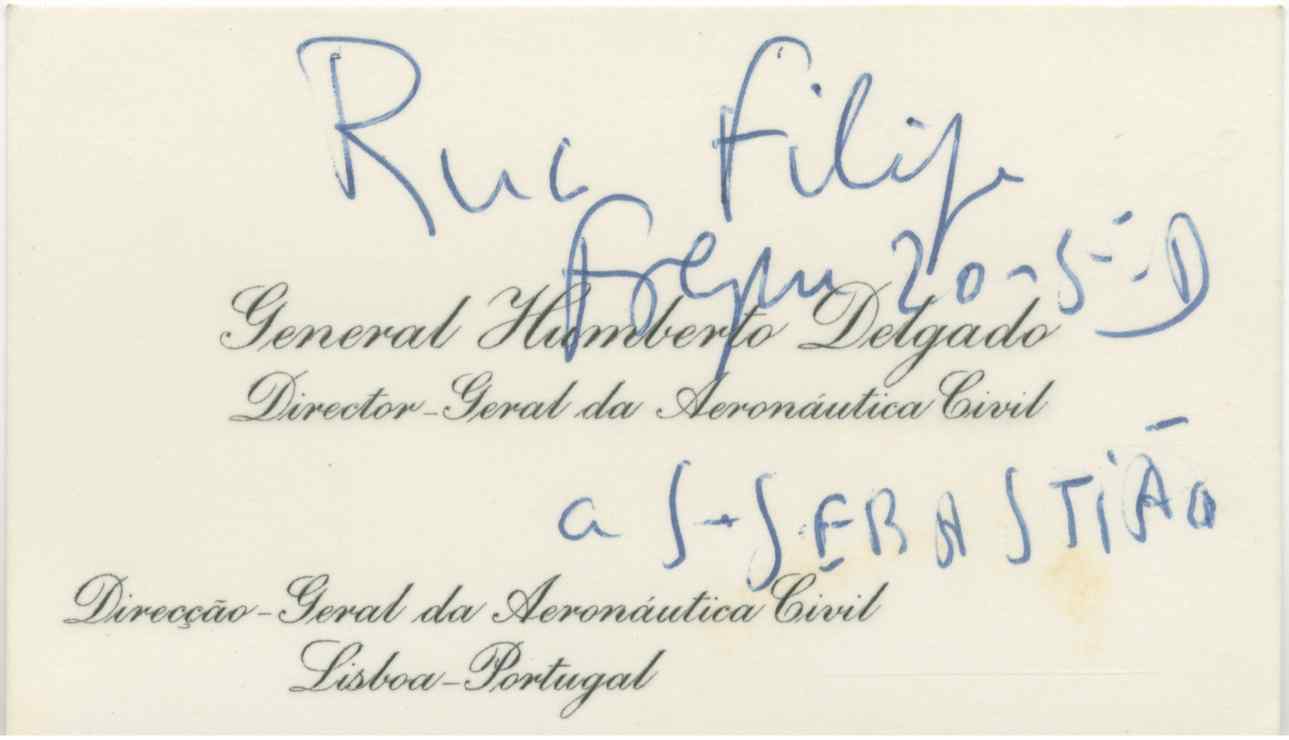 Rua Filipe
Folque 20-5º-D
General Humberto Delgado
Director-Geral da Aeronáutica Civil
a S-SEBASTIÃO
Direcção-Geral da Aeronáutica Civil
Lisboa-Portugal